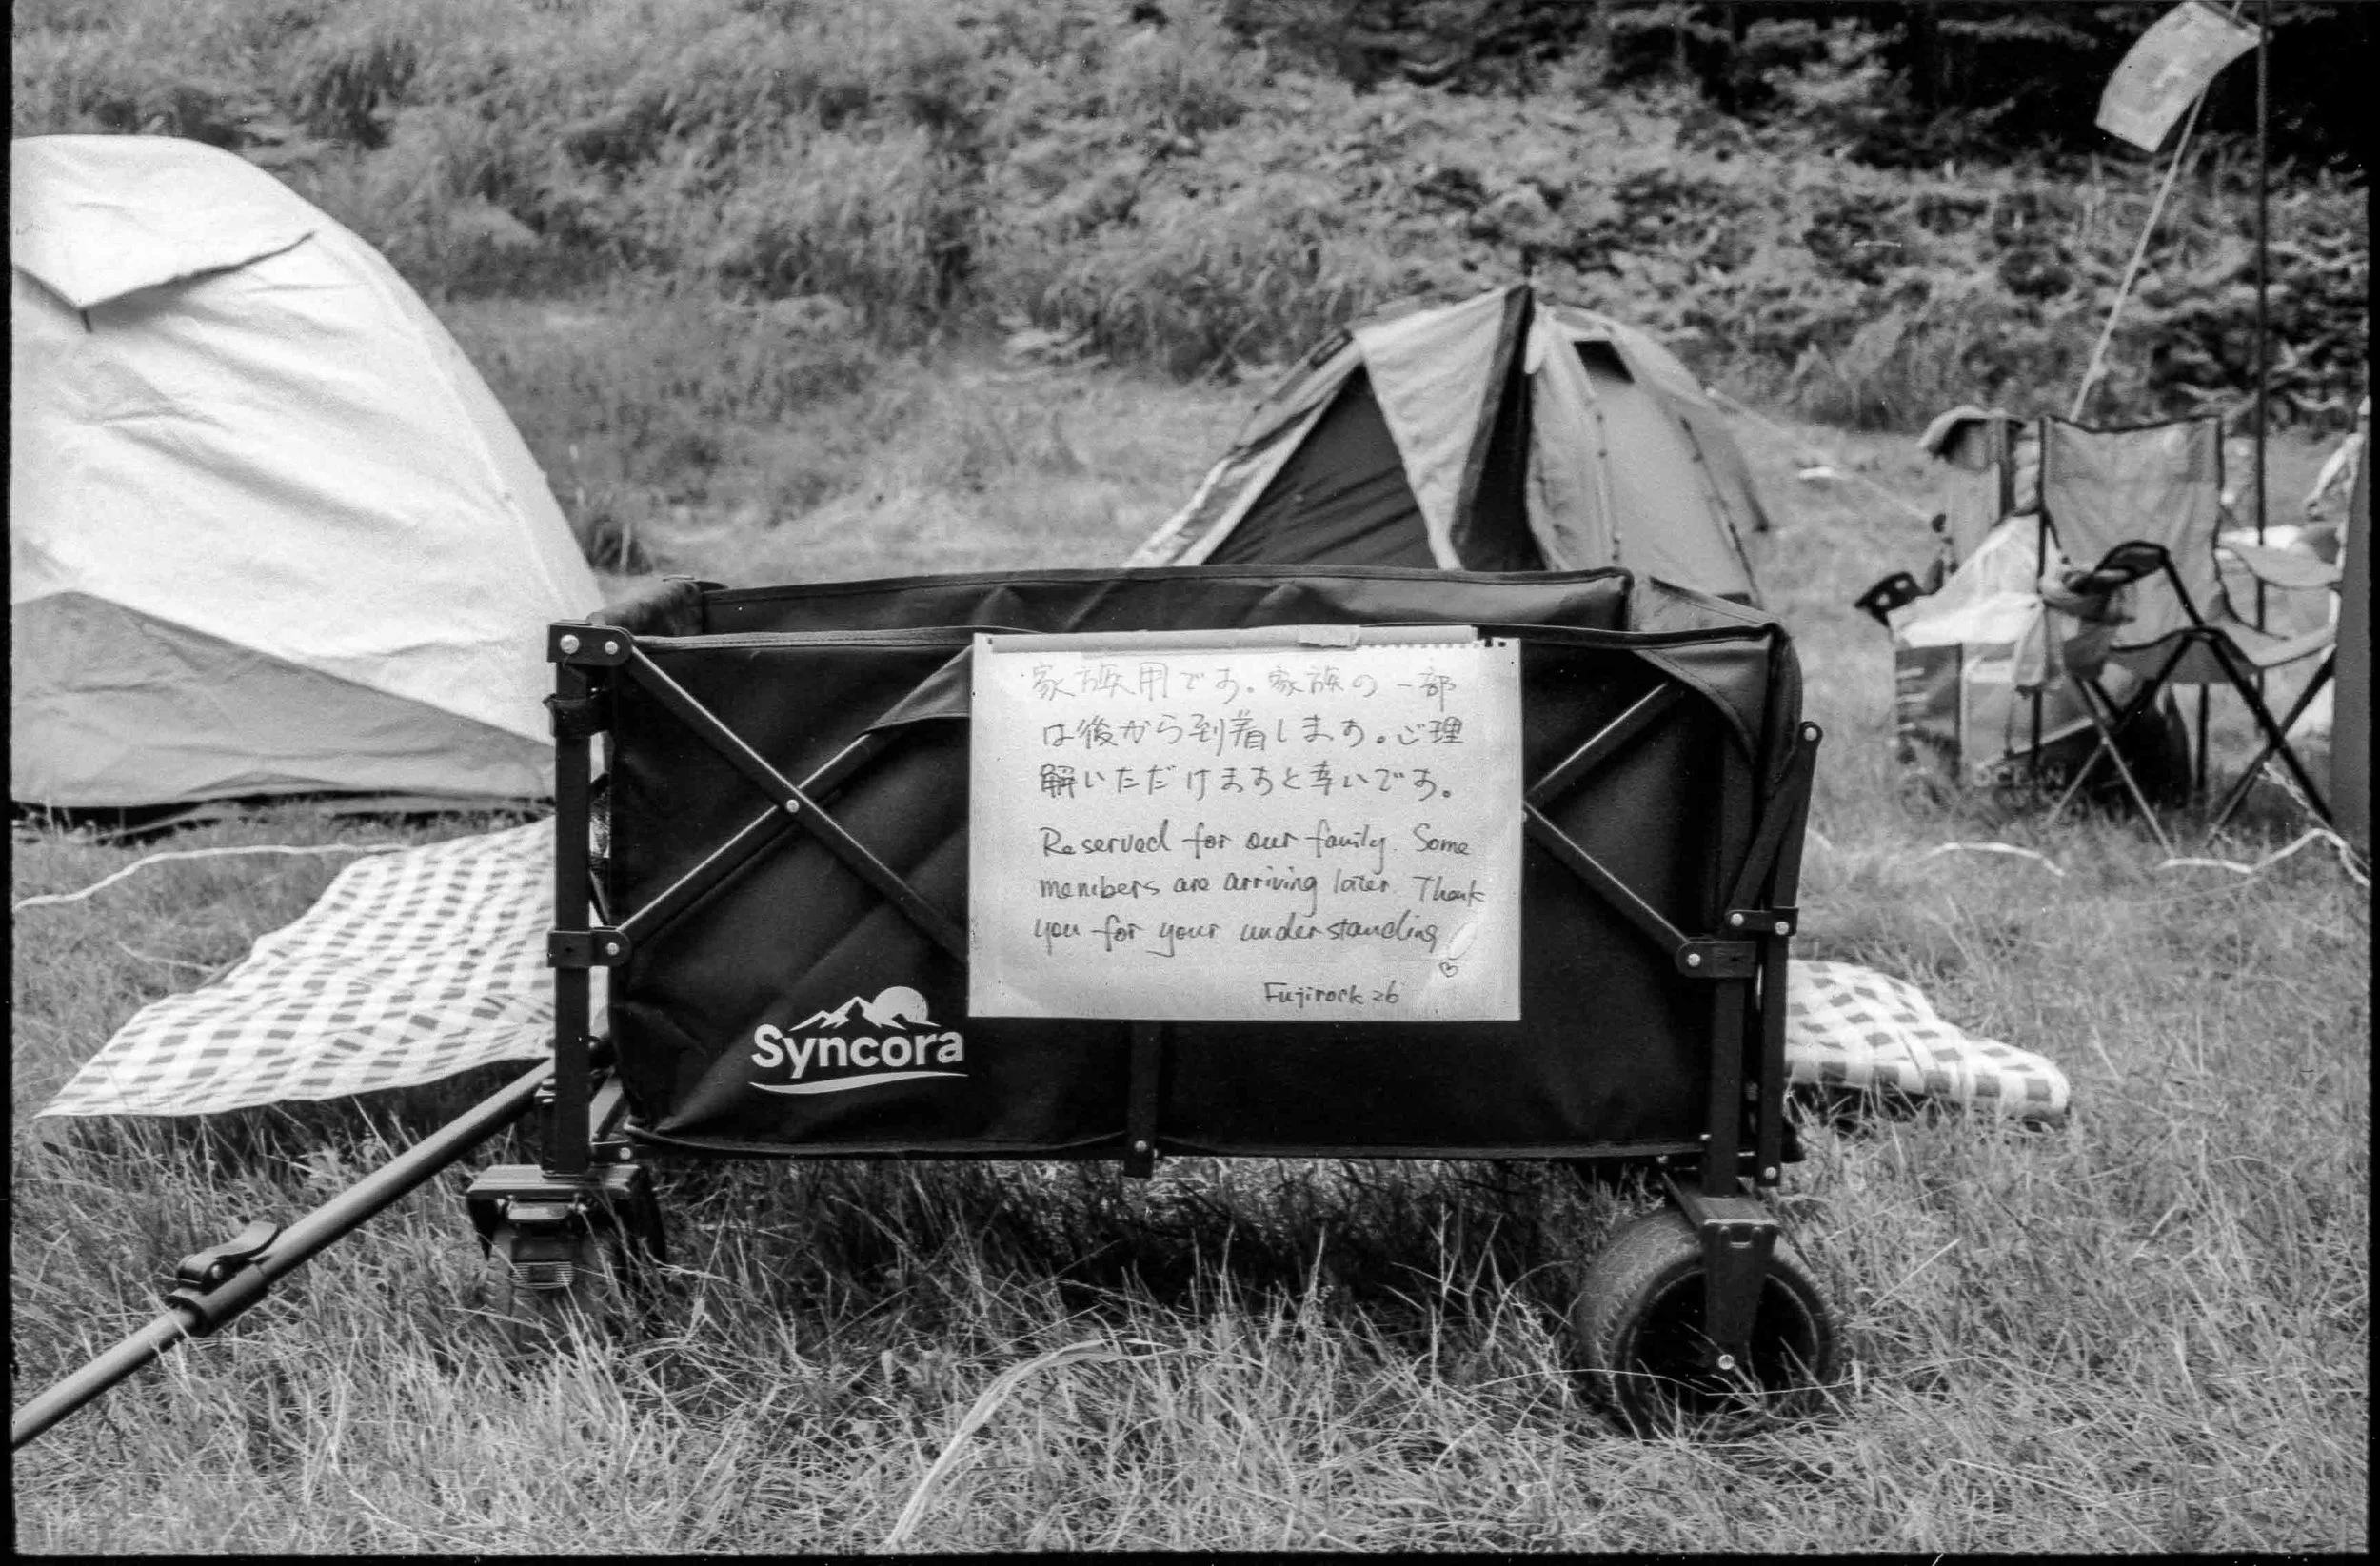 家族用です。家族の一部
は後から到着します。ご理
解いただけますと幸いです。
Reserved for our family. Some
members are arriving later. Thank
you for your understanding
♡
Fujirock 26
Syncora